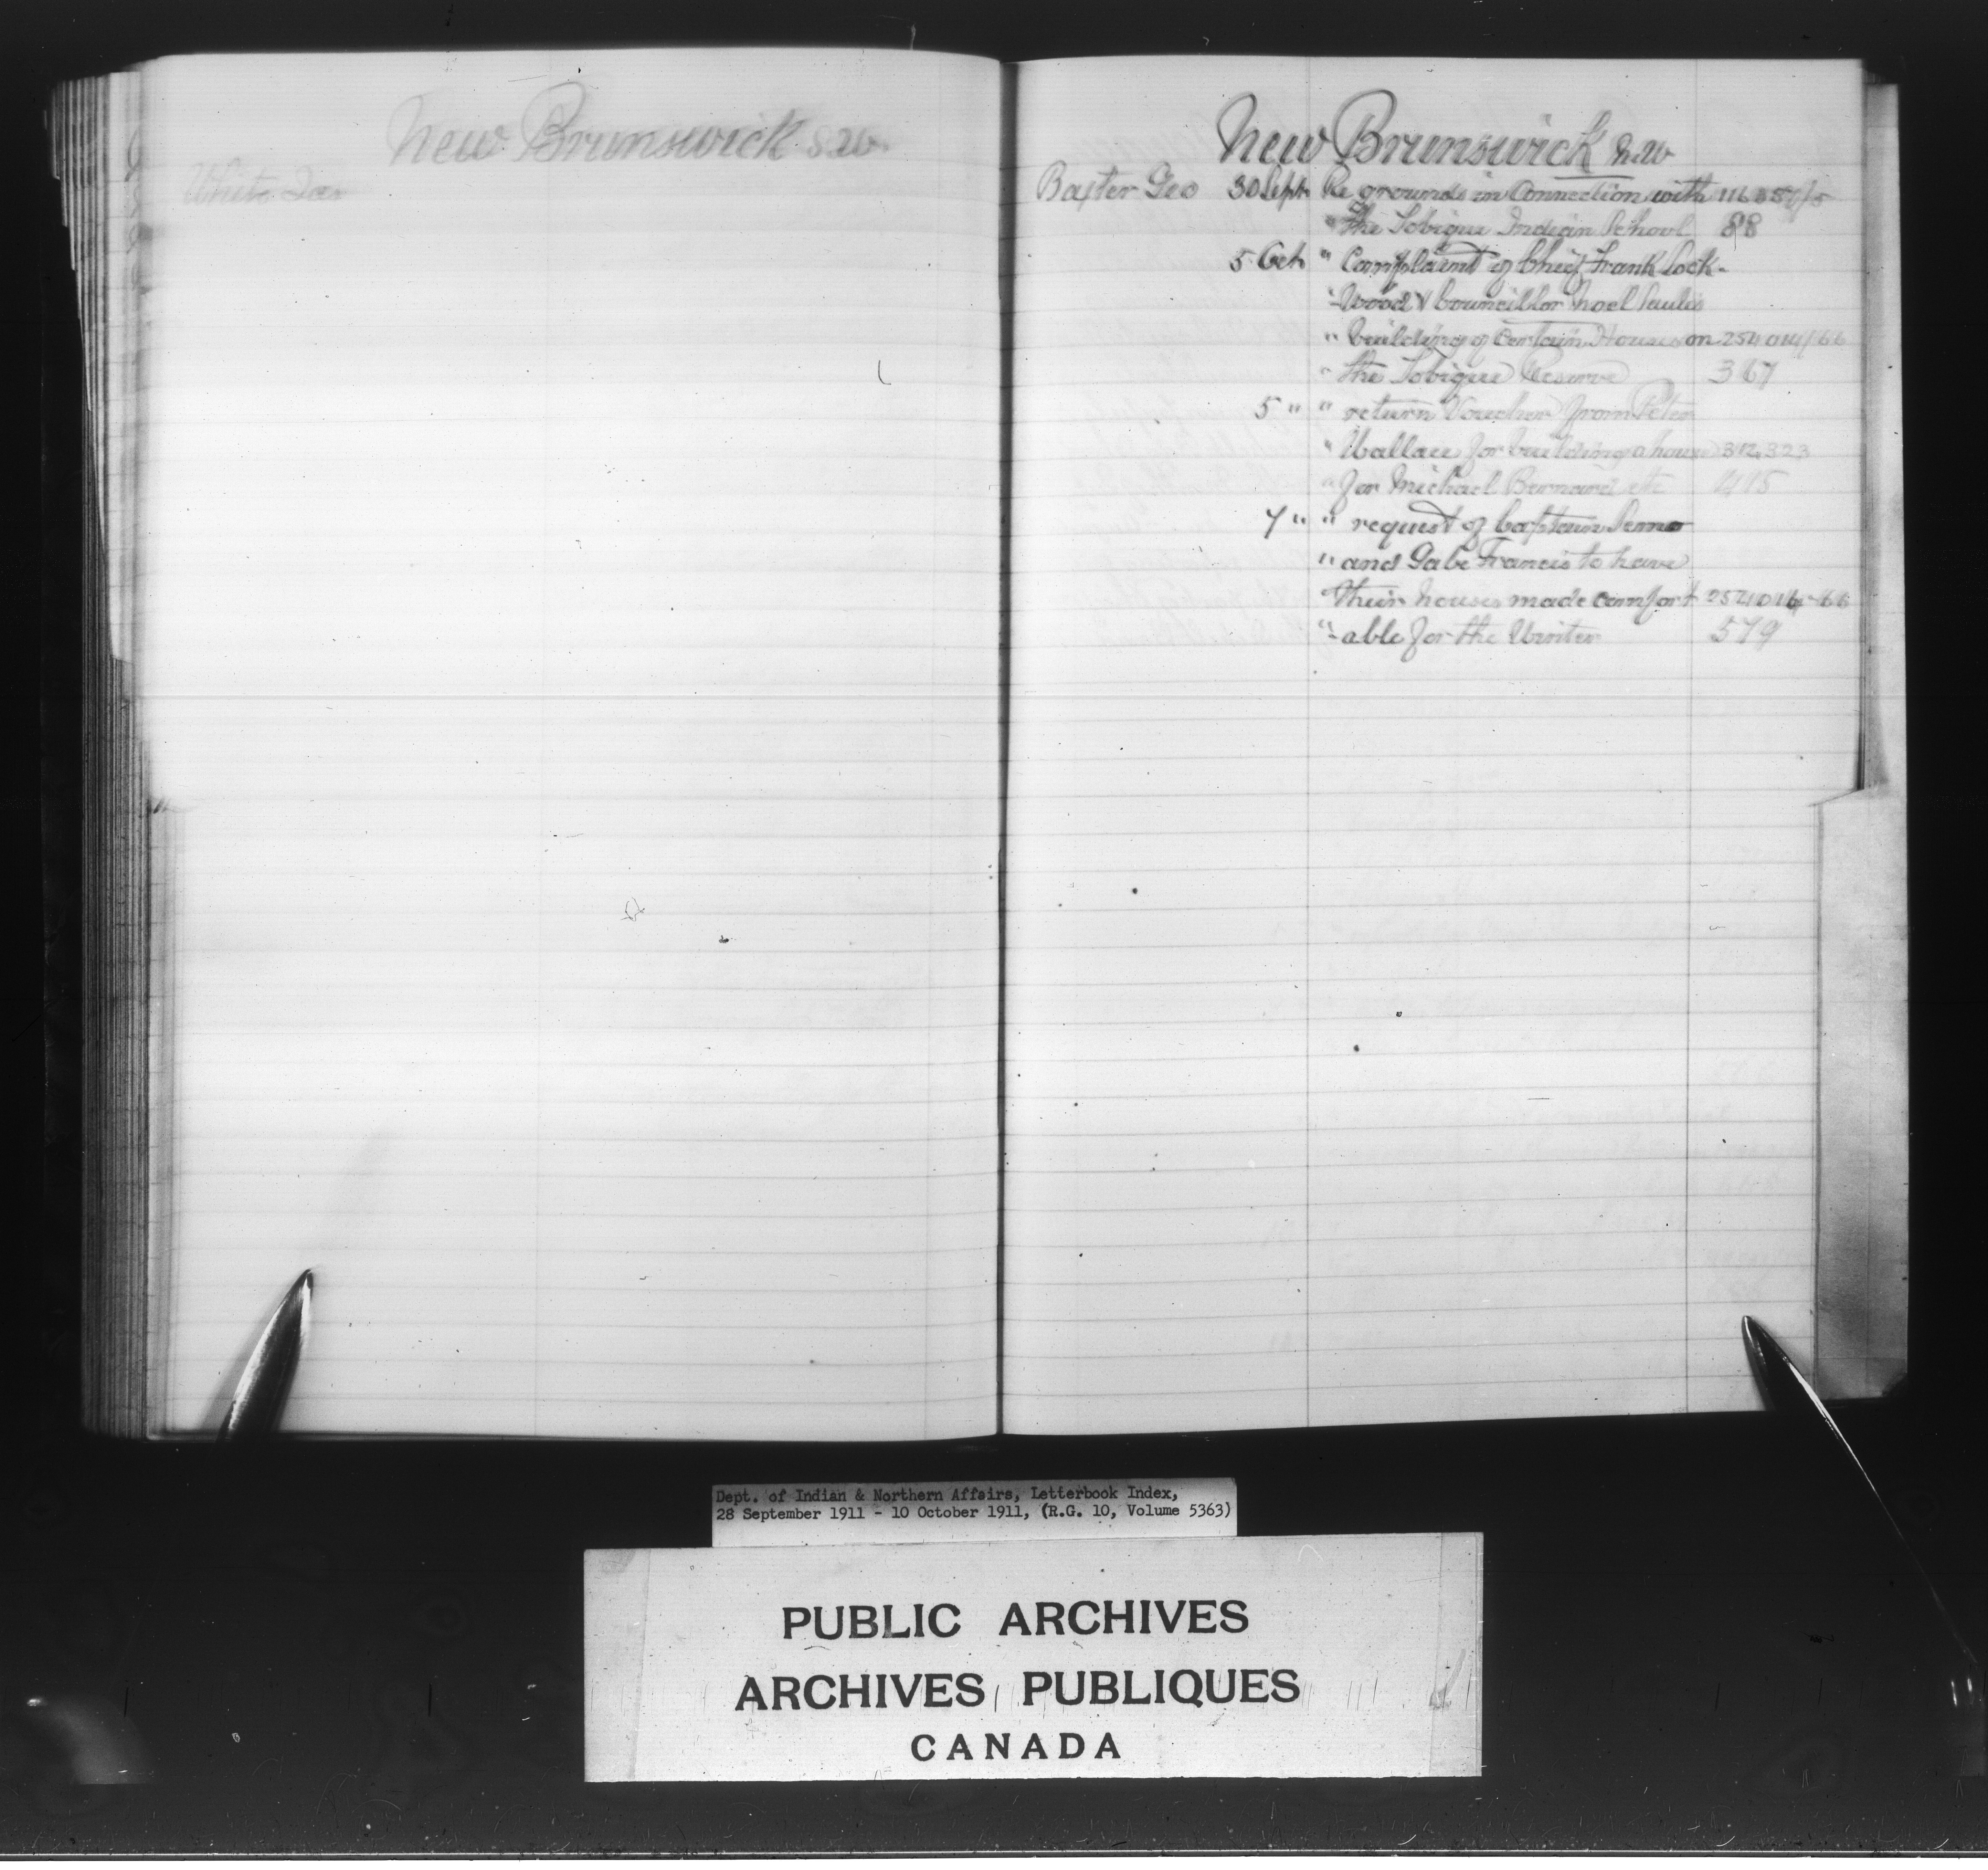 New Brunswick S.W.
White Jas
New Brunswick N.W
Baxter Geo 30 Sept Re grounds in Connection with 116
" the Tobique Indian School 88
5 Oct " Complaint of Chief Frank Lock-
"-wood & Councillor Noel Paul is
" building of Certain Houses on 254014/66
" the Tobique Reserve 367
5 " " return Voucher from Peter
" Wallace for building a house 312,323
" for Michael Bernard etc 415
7 " " request of Captain
" and Gabe Francis to have
" their houses made comfort 254014-66
"-able for the Winter 579
Dept. of Indian & Northern Affairs, Letterbook Index,
28 September 1911 - 10 October 1911, (R.G. 10, Volume 5363)
PUBLIC ARCHIVES
ARCHIVES PUBLIQUES
CANADA